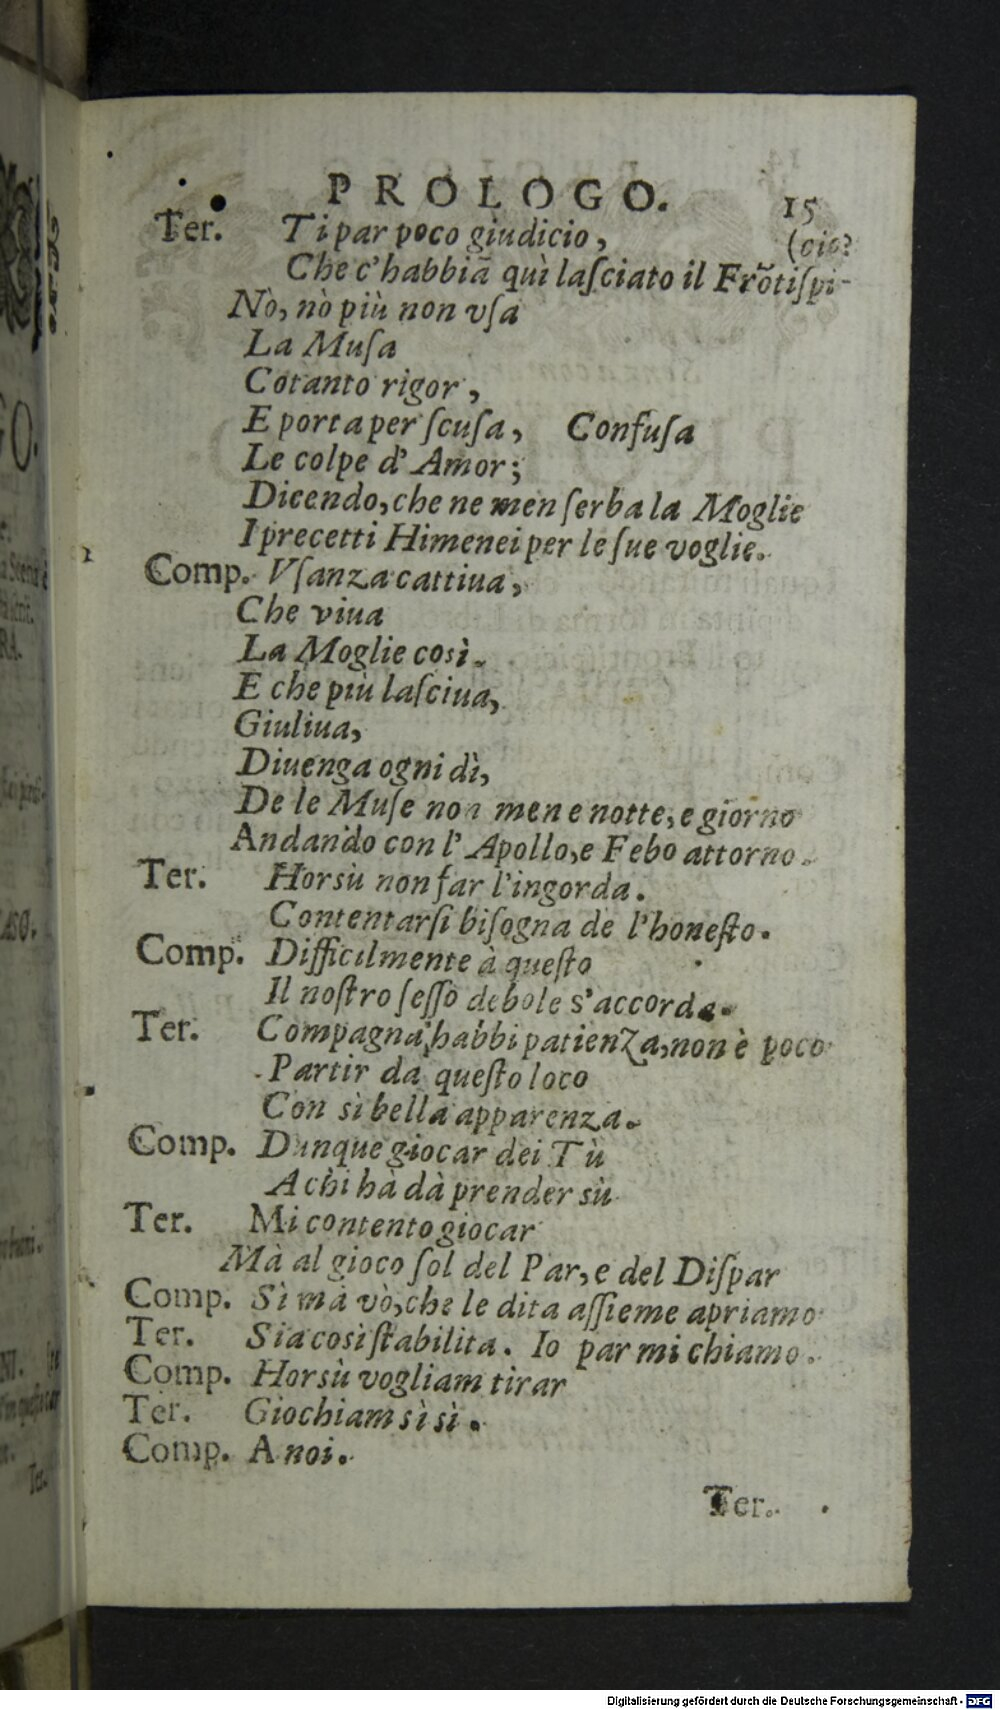 PROLOGO. 15
Ter. Ti par poco giudicio, (cio?
Che c'habbiã quì laſciato il Frõtiſpi-
Nò, nò più non vſa
La Muſa
Cotanto rigor,
E porta per ſcuſa, Confuſa
Le colpe d'Amor;
Dicendo, che ne men ſerba la Moglie
I precetti Himenei per le ſue voglie.
Comp. Vſanza cattiua,
Che viua
La Moglie così.
E che più laſciua,
Giuliua,
Diuenga ogni dì,
De le Muſe non men e notte, e giorno
Andando con l'Apollo, e Febo attorno.
Ter. Horsù non far l'ingorda.
Contentarſi biſogna de l'honeſto.
Comp. Difficilmente à queſto
Il noſtro ſeſſo debole s'accorda.
Ter. Compagna, habbi patienza, non è poco
Partir da queſto loco
Con sì bella apparenza.
Comp. Dunque giocar dei Tù
A chi hà dà prender sù
Ter. Mi contento giocar
Mà al gioco ſol del Par, e del Diſpar
Comp. Sì mà vò, che le dita aſſieme apriamo
Ter. Sia così ſtabilita. Io par mi chiamo.
Comp. Horsù vogliam tirar
Ter. Giochiam sì sì.
Comp. A noi.
Ter.
Digitalisierung gefördert durch die Deutsche Forschungsgemeinschaft - DFG